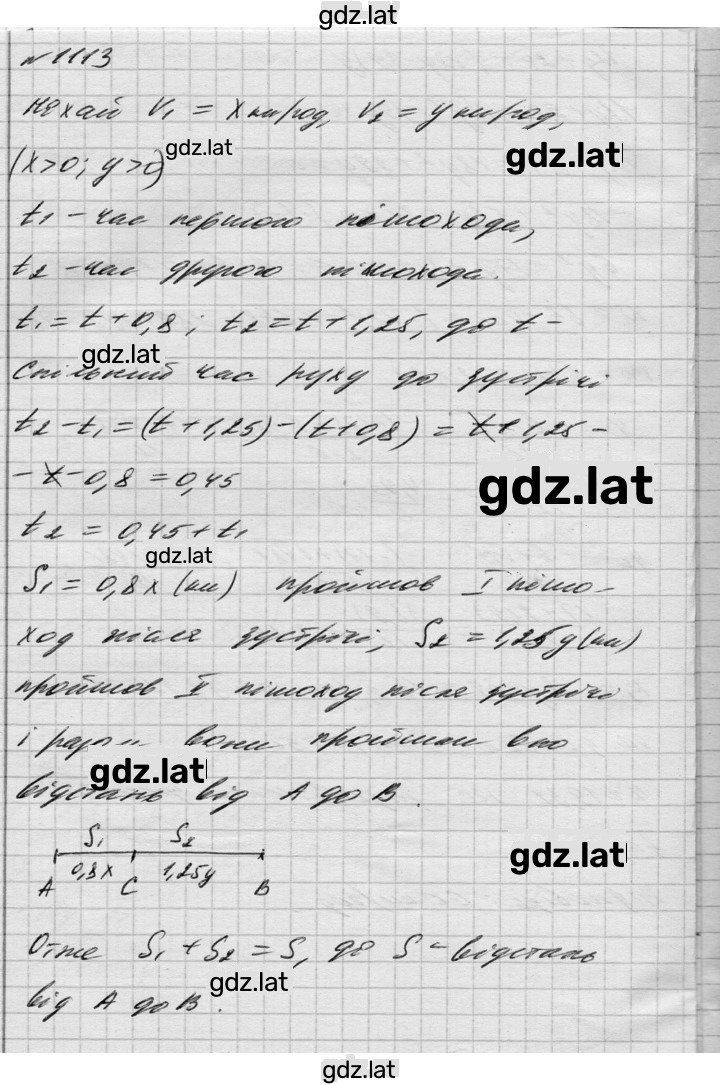 gdz.lat
№1113
Нехай V₁ = x км/год, V₂ = y км/год,
gdz.lat
(x>0; y>0)
gdz.lat
t₁ - час першого пішохода,
t₂ - час другого пішохода.
t₁ = t + 0,8; t₂ = t + 1,25, де t -
gdz.lat
спільний час руху до зустрічі
t₂ - t₁ = (t + 1,25) - (t + 0,8) = t + 1,25 -
- t - 0,8 = 0,45
gdz.lat
t₂ = 0,45 + t₁
gdz.lat
S₁ = 0,8x (км) пройшов I пішо-
ход після зустрічі, S₂ = 1,25y (км)
пройшов II пішоход після зустрічі
і разом вони пройшли всю
gdz.lat
відстань від A до B.
S₁ S₂
gdz.lat
0,8x 1,25y
A C B
Отже S₁ + S₂ = S, де S - відстань
gdz.lat
від A до B.
gdz.lat